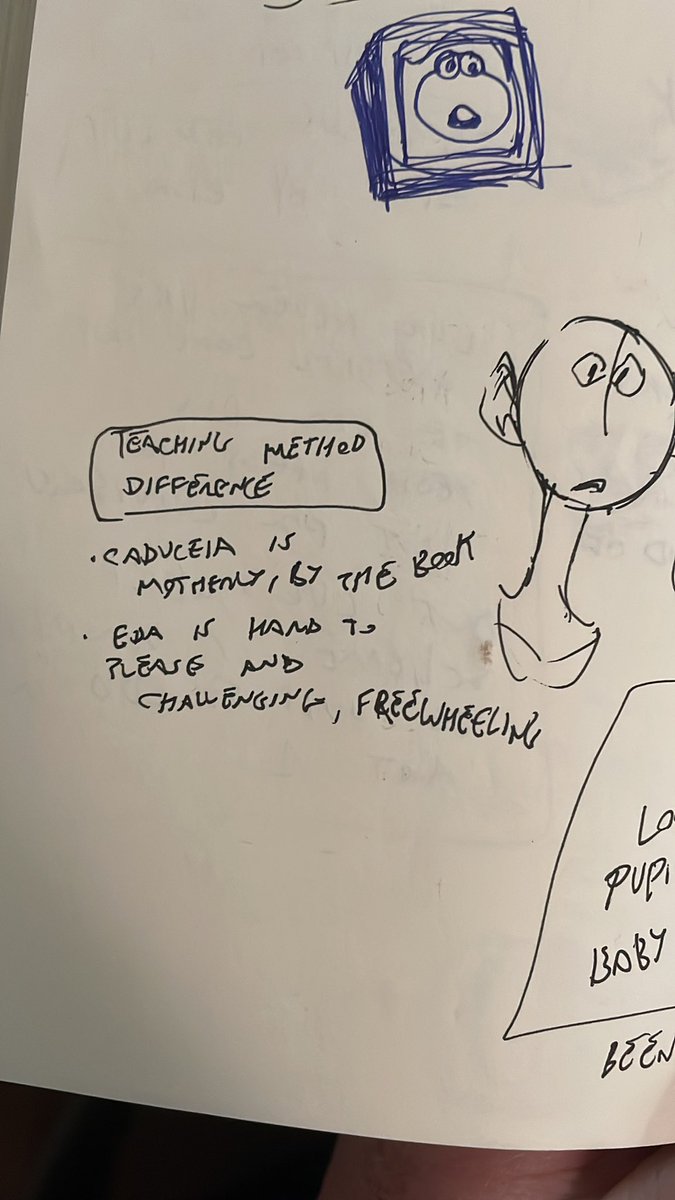 TEACHING METHOD
DIFFERENCE
· CADUCEIA IS
MOTHERLY, BY THE BOOK
· EDA IS HARD TO
PLEASE AND
CHALLENGING, FREEWHEELING
LO
PUPI
BABY
BEEN